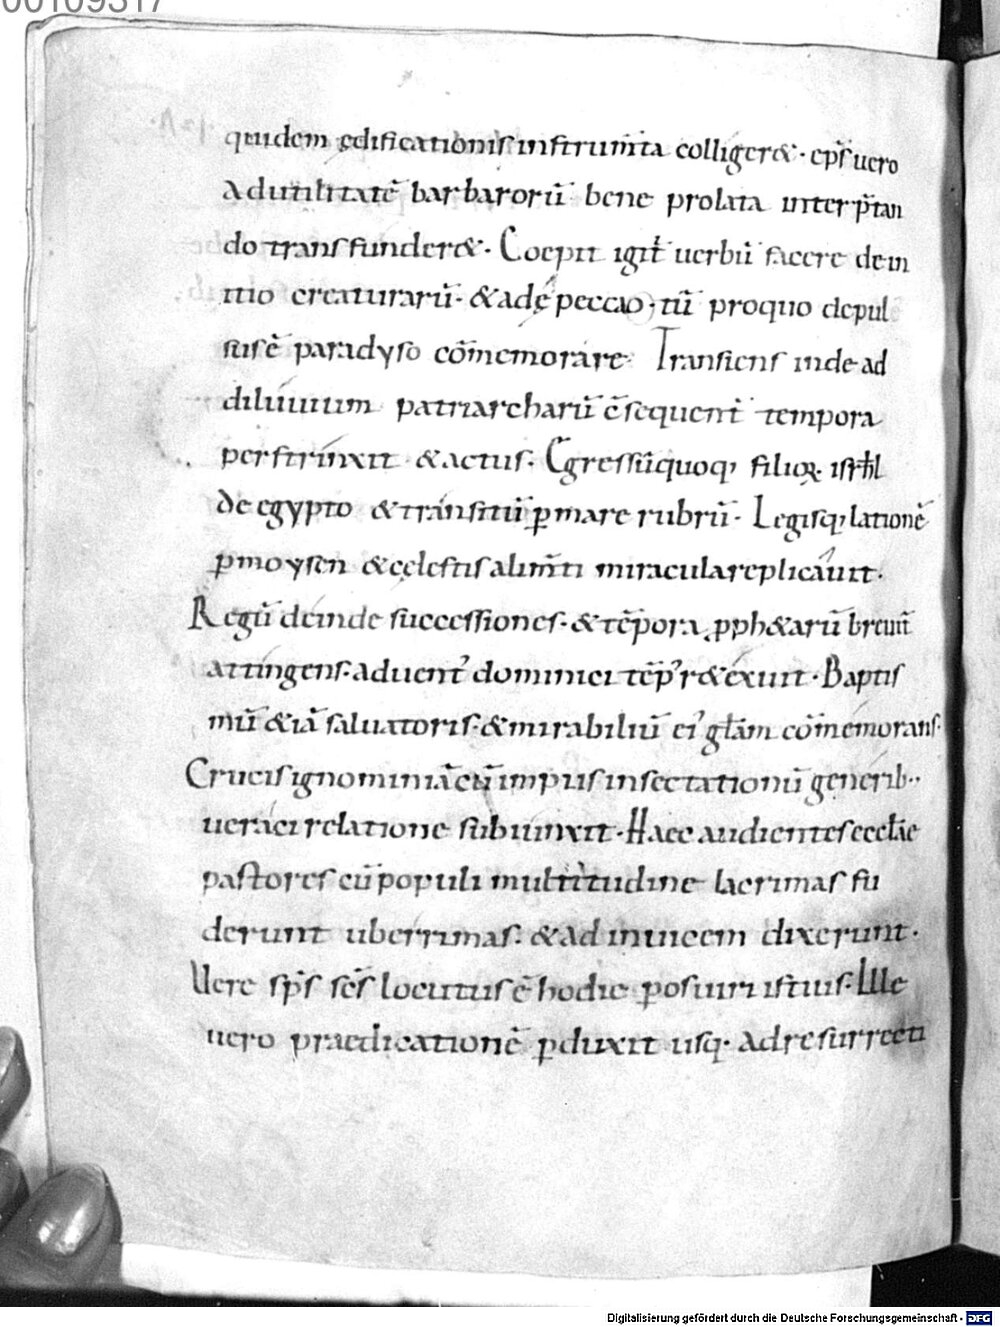 00109317
quidem ędificationis instrum̄ta colliger&. ep̄s uero
ad utilitatē barbarorū bene prolata interp̄tan
do transfunder&. Coepit igit̄ uerbū facere de in
itio creaturarū. &adę peccao, tū pro quo depul
sus ē paradyso cōmemorare. Transiens inde ad
diluuium patriarcharū c̄sequent̄ tempora
perstrinxit & actus. Egressūquoq; filioꝝ. isrhl̄
de egypto & transitū ꝑ mare rubrū. Legisq; lationē
ꝑ moysen & cęlestis alim̄ti miracula replicauit.
Regū deinde successiones. & tēpora, pph&arū breuit̄
attingens. aduent᾿ dominici tēp᾿ r&exuit. Baptis
mū & iā saluatoris. & mirabiliū ei᾿ gl̄am cōmemorans.
Crucis ignominiā cū impiis insectationū generib..
ueraci relatione subiunxit. Haec audientes eccl̄ie
pastores cū populi multitudine lacrimas fu
derunt uberrimas. & ad inuicem dixerunt.
Uere sp̄s sc̄s locutus ē hodie ꝑ os uiri istius. Ille
uero praedicationē ꝑduxit usq. ad resurrecti
Digitalisierung gefördert durch die Deutsche Forschungsgemeinschaft - DFG